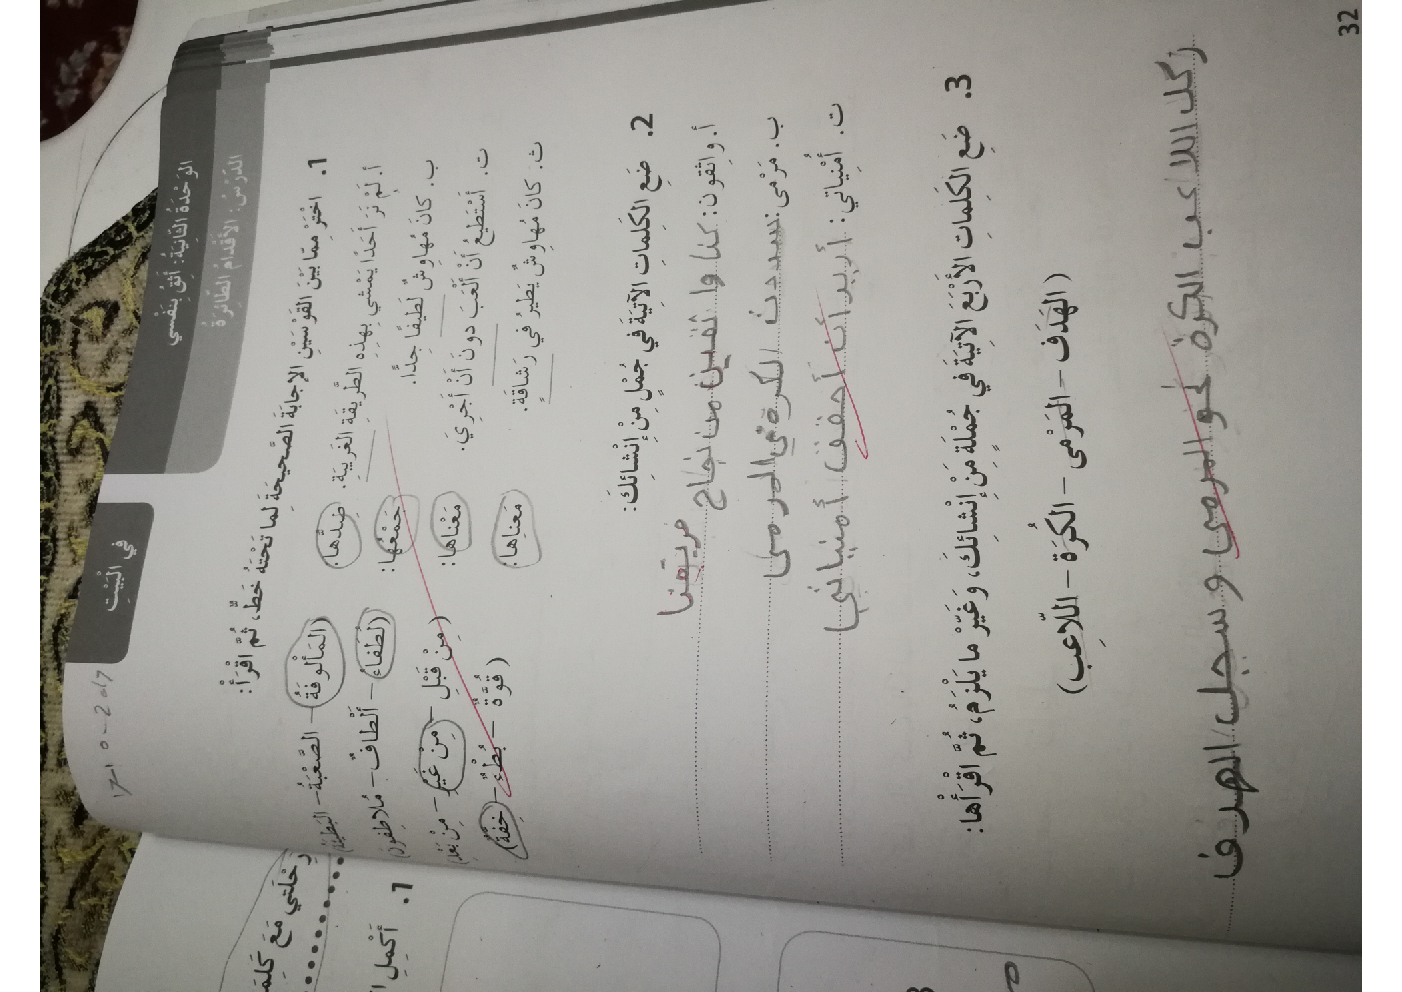 32
الوَحْدَةُ الثّانِيَةُ: أَثِقُ بِنَفْسي
الدَّرْسُ: الأَقْدامُ الطّائِرَةُ
في الْبَيْتِ
1. اخْتَرْ مِمّا بَيْنَ القَوْسَيْنِ الإِجابَةَ الصَّحيحَةَ لِما تَحْتَهُ خَطٌّ، ثُمَّ اقْرَأْ:
أ. لَمْ نَرَ أَحَدًا يَمْشي بِهذِهِ الطَّريقَةِ الغَريبَةِ. ضِدُّها: (المَأْلوفَةُ – الصَّعْبَةُ – البَطيئَةُ)
ب. كانَ مُهاوِشٌ لَطيفًا جِدًّا. جَمْعُها: (لُطَفاءُ – أَلْطافٌ – مُلاطِفونَ)
ت. أَسْتَطيعُ أَنْ أَلْعَبَ دونَ أَنْ أَجْرِيَ. مَعْناها: (مِنْ قَبْلِ – مِنْ غَيْرِ – مِنْ بَعْدِ)
ث. كانَ مُهاوِشٌ يَطيرُ في رَشاقَةٍ. مَعْناها: (قُوَّةٌ – بُطْءٌ – خِفَّةٌ)
2. ضَعِ الكَلِماتِ الآتِيَةَ في جُمَلٍ مِنْ إِنْشائِكَ:
أ. واثِقون: كنا واثقين من نجاح
فريقنا
ب. مَرْمى: سددت الكرة في المرمى
ت. أُمْنِياتي: أريد أن أحقق أمنياتي
3. ضَعِ الكَلِماتِ الأَرْبَعَ الآتِيَةَ في جُمْلَةٍ مِنْ إِنْشائِكَ، وَغَيِّرْ ما يَلْزَمُ، ثُمَّ اقْرَأْها:
(الهَدَف – المَرْمى – الكُرَة – اللّاعِب)
ركل اللاعب الكرة نحو المرمى وسجل الهدف
رِحْلَتي مَعَ
1. أُكْمِلِ